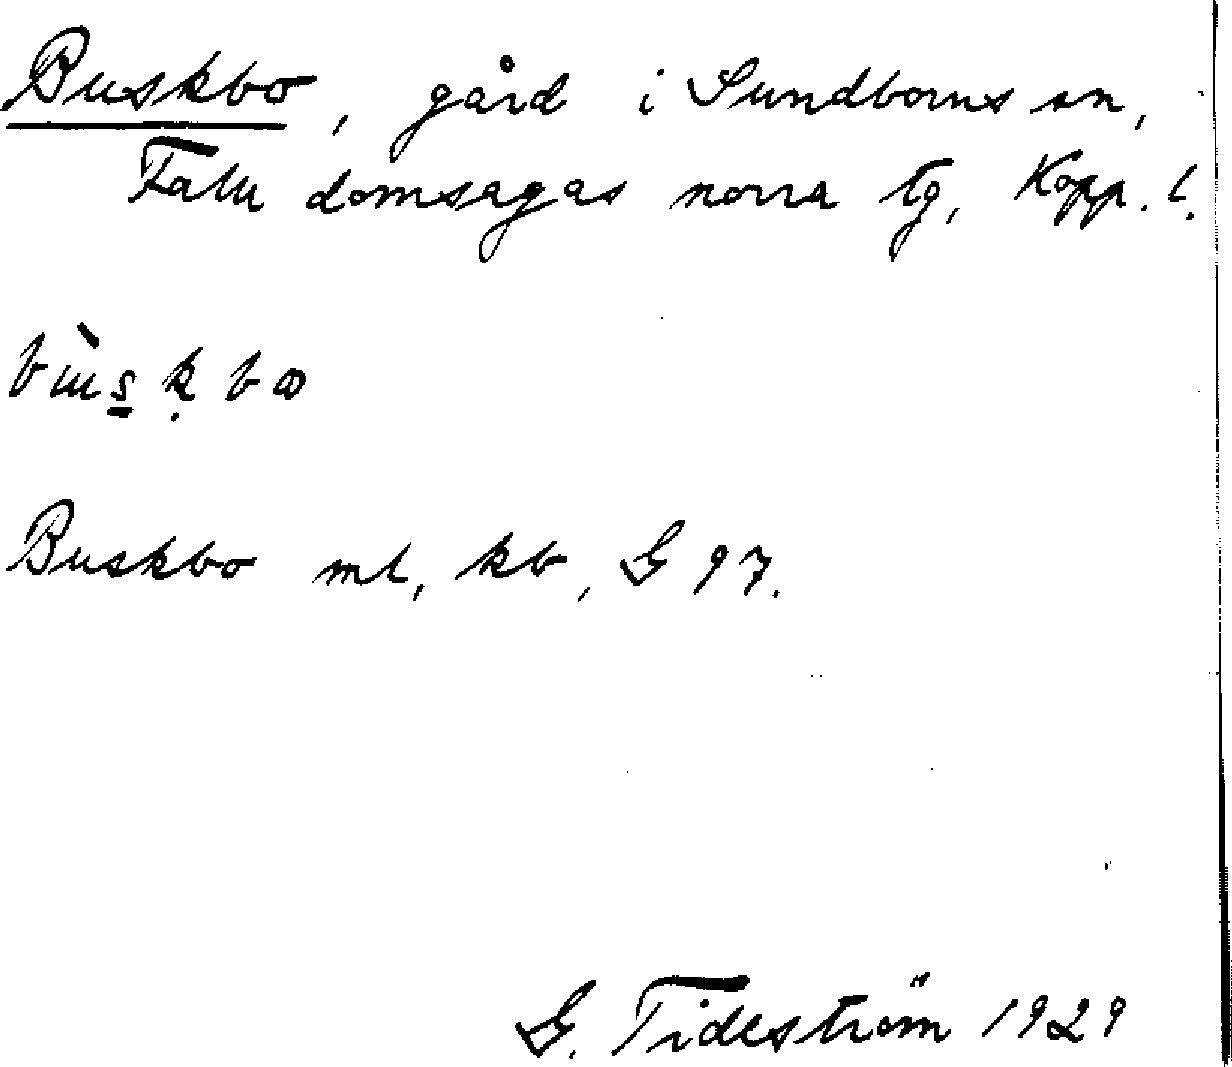 Buskbo, gård i Sundborns sn,
Falu domsagas norra tg, Kopp. l.
Buskbo ml, kb, G 97.
G. Tideström 1929